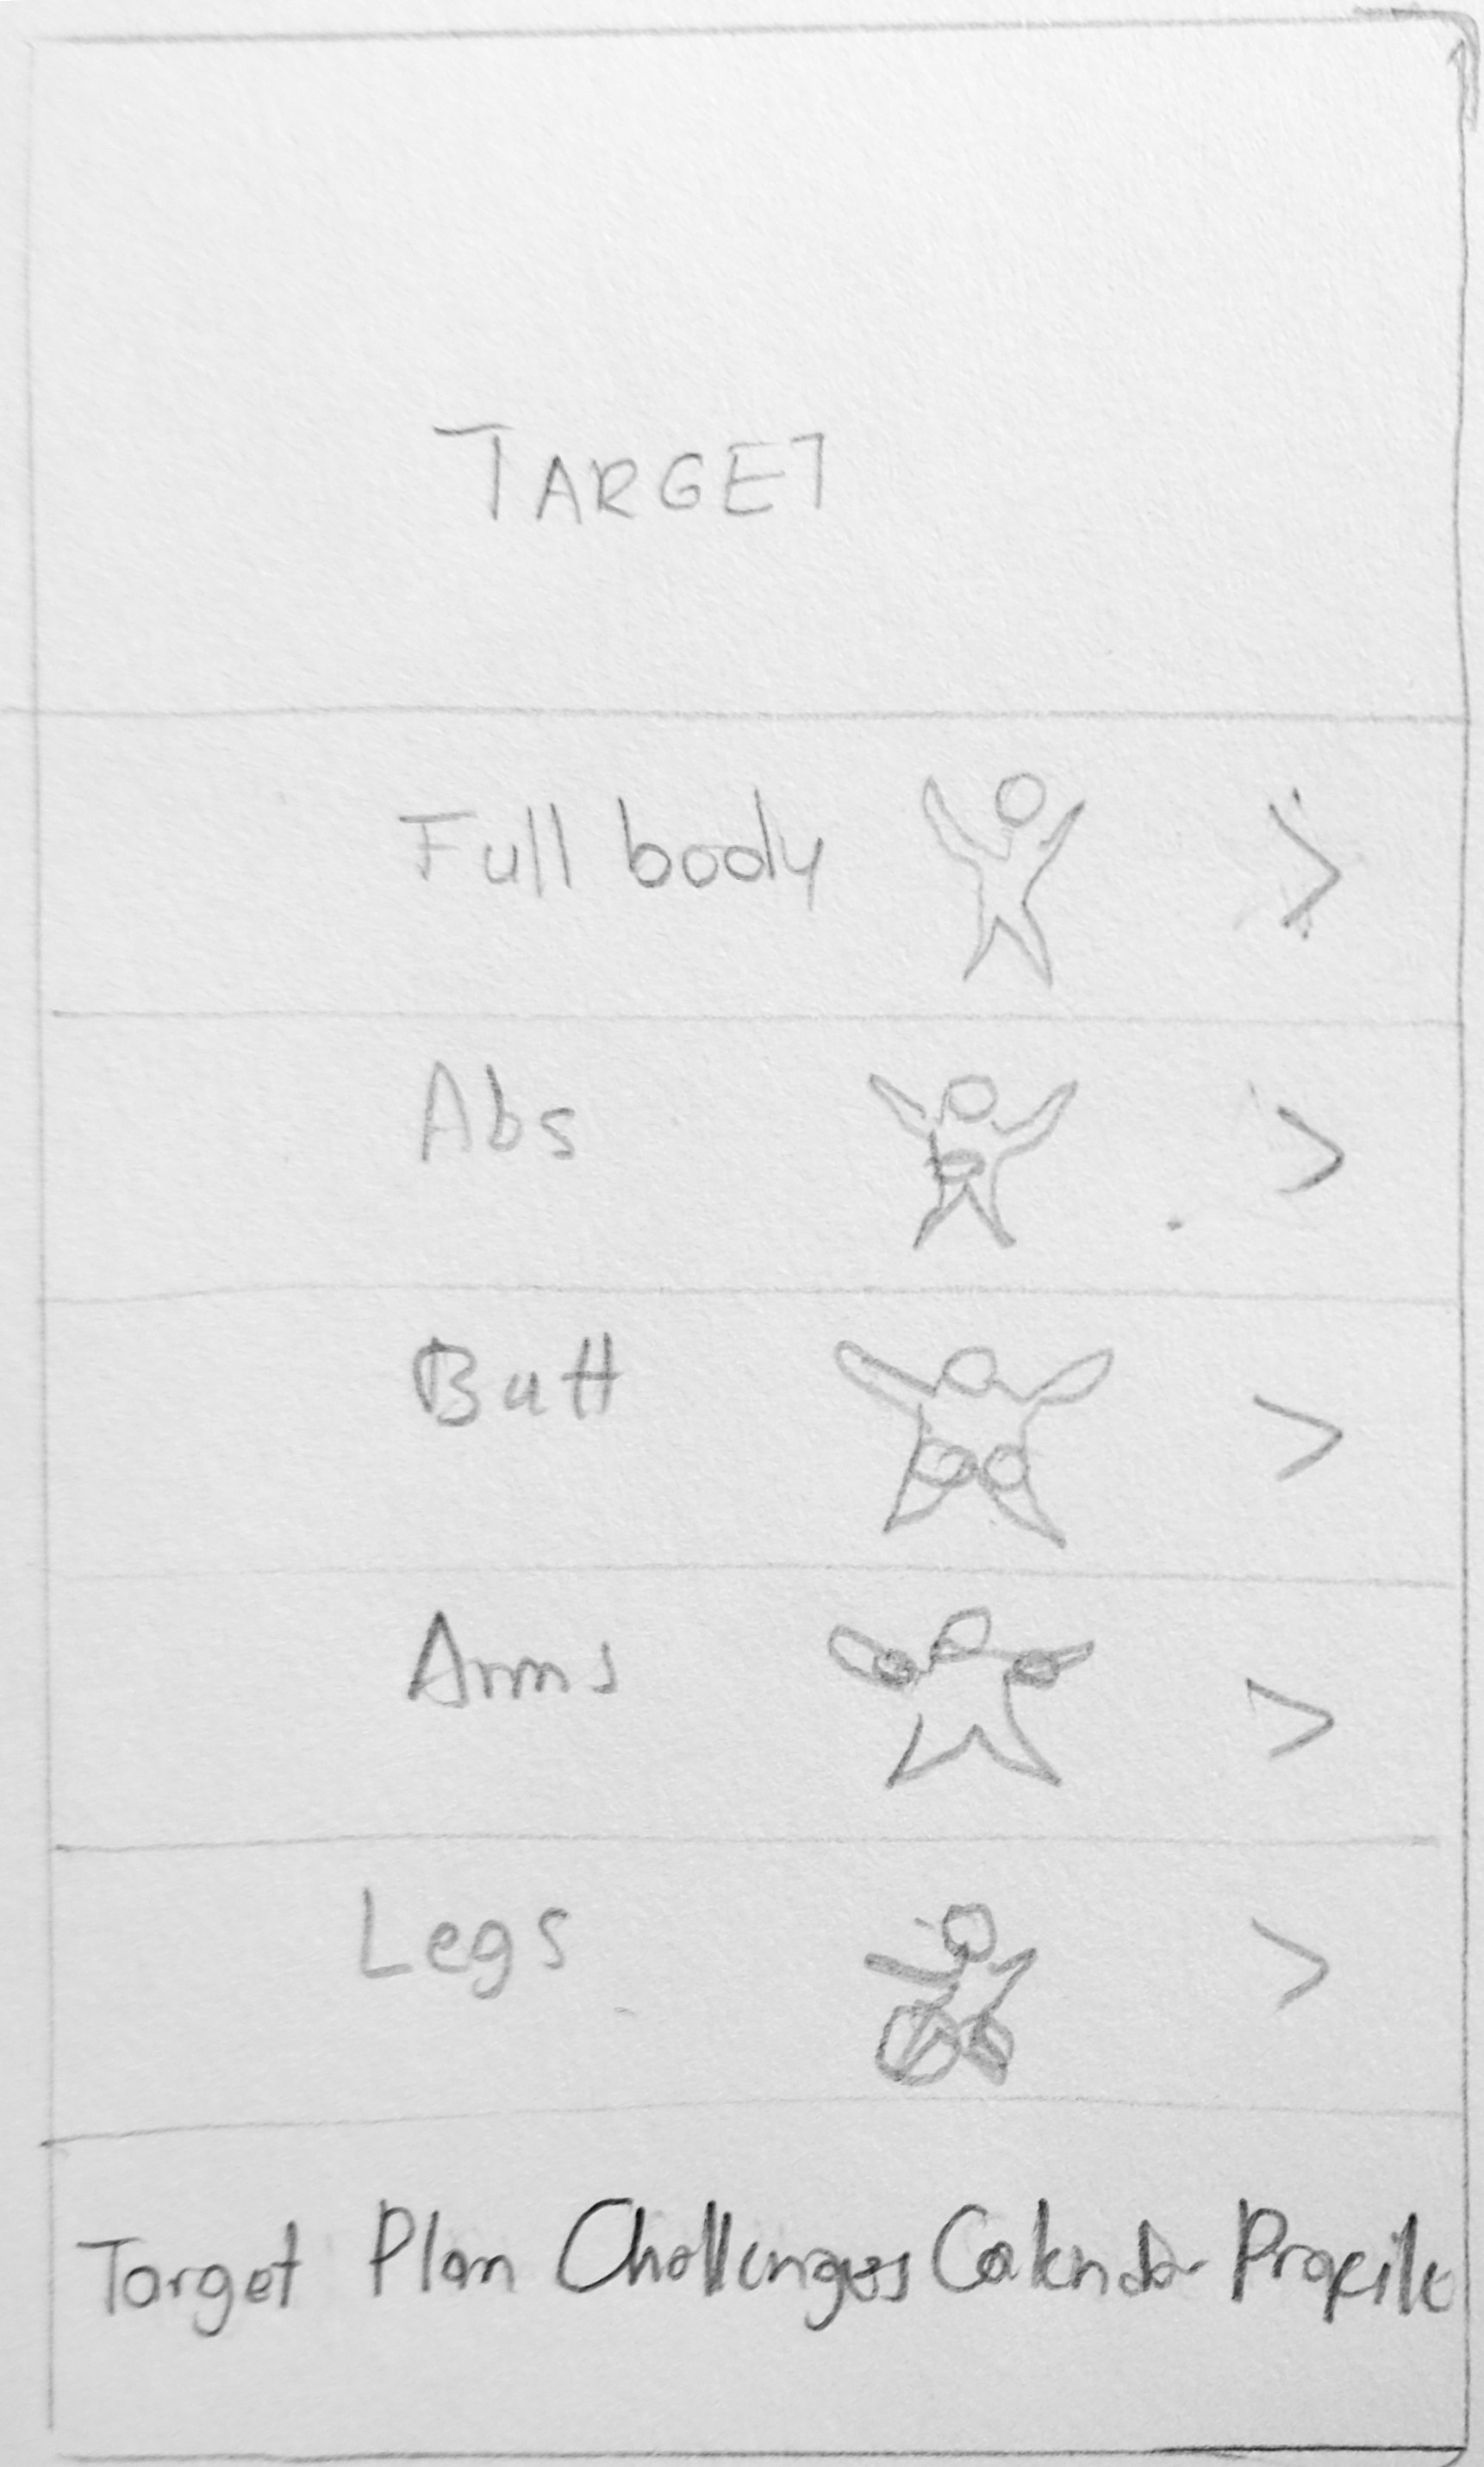 TARGET
Full body >
Abs >
Butt >
Arms >
Legs >
Target Plan Challenges Calendar Profile